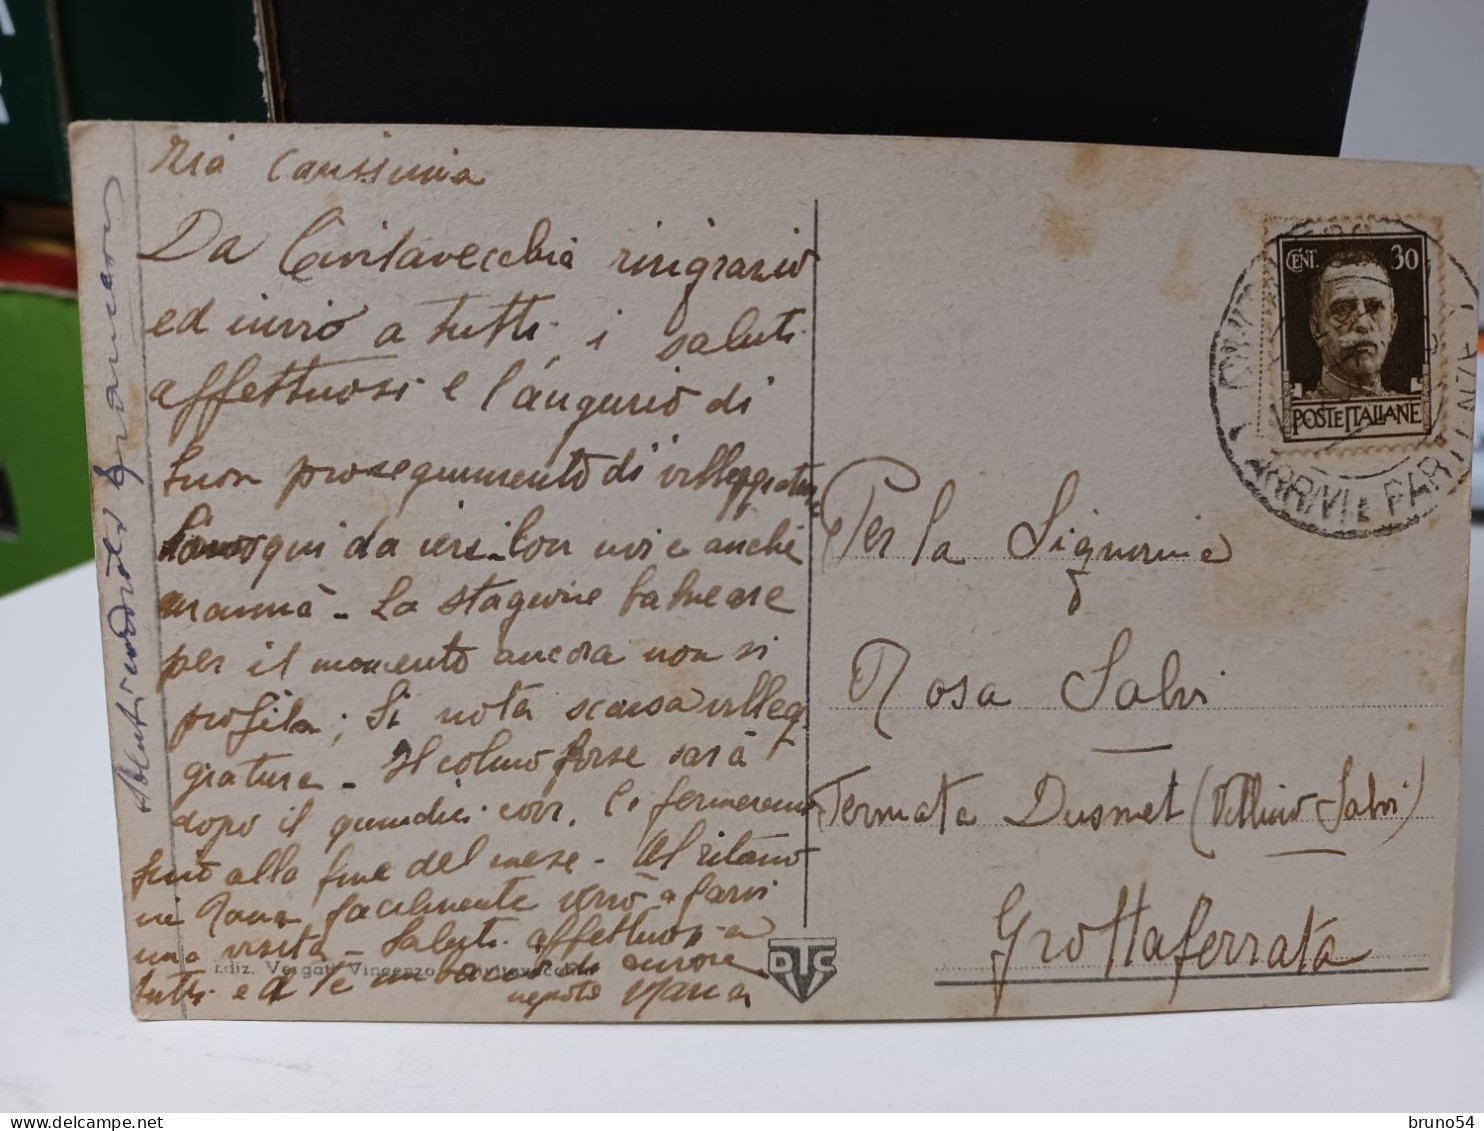 Zia carissima
Da Civitavecchia ringrazio
ed invio a tutti i saluti
affettuosi e l'augurio di
buon proseguimento di villeggiatura
qui da ieri con noi e anche
mammà - La stagione balneare
per il momento ancora non si
profila; Si nota scarsa villeg
giatura - Il colmo forse sarà
dopo il quindici corr. Ci fermeremo
fino alla fine del mese - Al ritorno
in Roma facilmente verrò a farvi
una visita - Saluti affettuosi a
tutti ed a te un bacio di cuore
nipote Maria
Ediz. Vergati Vincenzo - Civitavecchia
DTC
CENT. 30
POSTE ITALIANE
ARRIVI E PART
Per la Signorina
Rosa Salvi
Fermata Dusmet (Villino Salvi)
Grottaferrata
bruno54